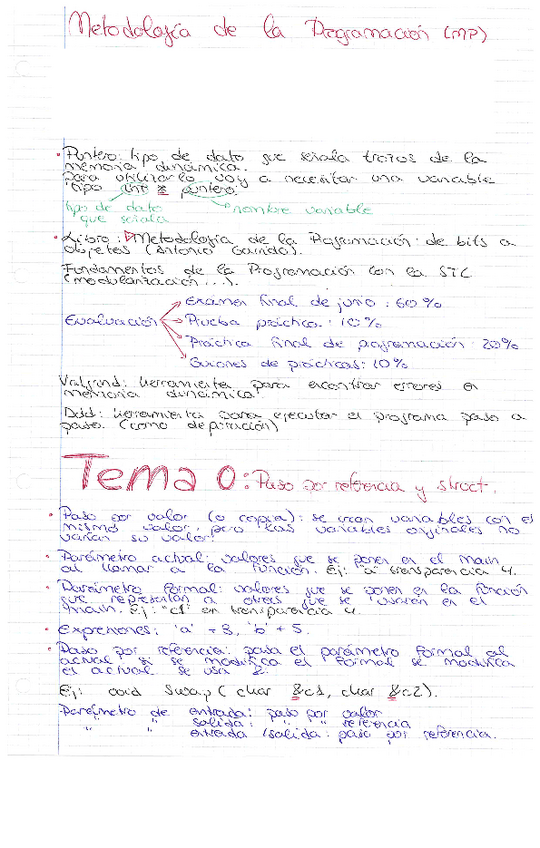 Metodología de la Programación (MP)
· Puntero: tipo de dato que señala trozos de la
memoria dinámica.
Para utilizarlo voy a necesitar una variable
"tipo int * puntero".
tipo de dato
que señala
nombre variable
· Libro: Metodología de la Programación: de bits a
objetos (Antonio Garrido).
Fundamentos de la Programación con la STL
(modularización...).
Evaluación
Examen final de junio: 60%
Prueba práctica: 10%
Práctica final de programación: 20%
Guiones de prácticas: 10%
Valgrind: herramienta para encontrar errores en
memoria dinámica.
Ddd: herramienta para ejecutar el programa paso a
paso. (como depuración)
Tema 0: Paso por referencia y struct.
· Paso por valor (o copia): se crean variables con el
mismo valor, pero las variables originales no
varían su valor.
· Parámetro actual: valores que se ponen en el main
al llamar a la función. Ej: "a" transparencia 4.
· Parámetro formal: valores que se ponen en la función
que representan a otras que se usarán en el
main. Ej: "c1" en transparencia 4.
· Expresiones: 'a' + 8, 'b' + 5.
· Paso por referencia: pasa el parámetro formal al
actual si se modifica el formal se modifica
el actual. se usa &.
Ej: void Swap (char &c1, char &c2).
Parámetro de entrada: paso por valor
" " salida: " " referencia
" " entrada/salida: paso por referencia.